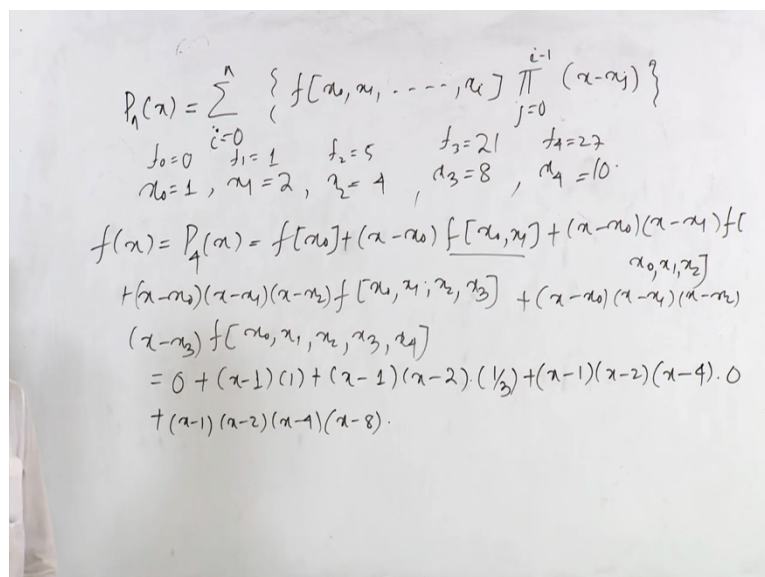 Pₙ(x) = Σ_{i=0}^{n} { f[x₀, x₁, ----, xᵢ] Π_{j=0}^{i-1} (x-xⱼ) }
f₀=0 f₁=1 f₂=5 f₃=21 f₄=27
x₀=1, x₁=2, x₂=4, x₃=8, x₄=10.
f(x) = P₄(x) = f[x₀]+(x-x₀) f[x₀,x₁]+(x-x₀)(x-x₁)f[
x₀,x₁,x₂]
+(x-x₀)(x-x₁)(x-x₂)f[x₀,x₁,x₂,x₃] +(x-x₀)(x-x₁)(x-x₂)
(x-x₃) f[x₀,x₁,x₂,x₃,x₄]
= 0 + (x-1)(1)+(x-1)(x-2).(1/3)+(x-1)(x-2)(x-4).0
+(x-1)(x-2)(x-4)(x-8).